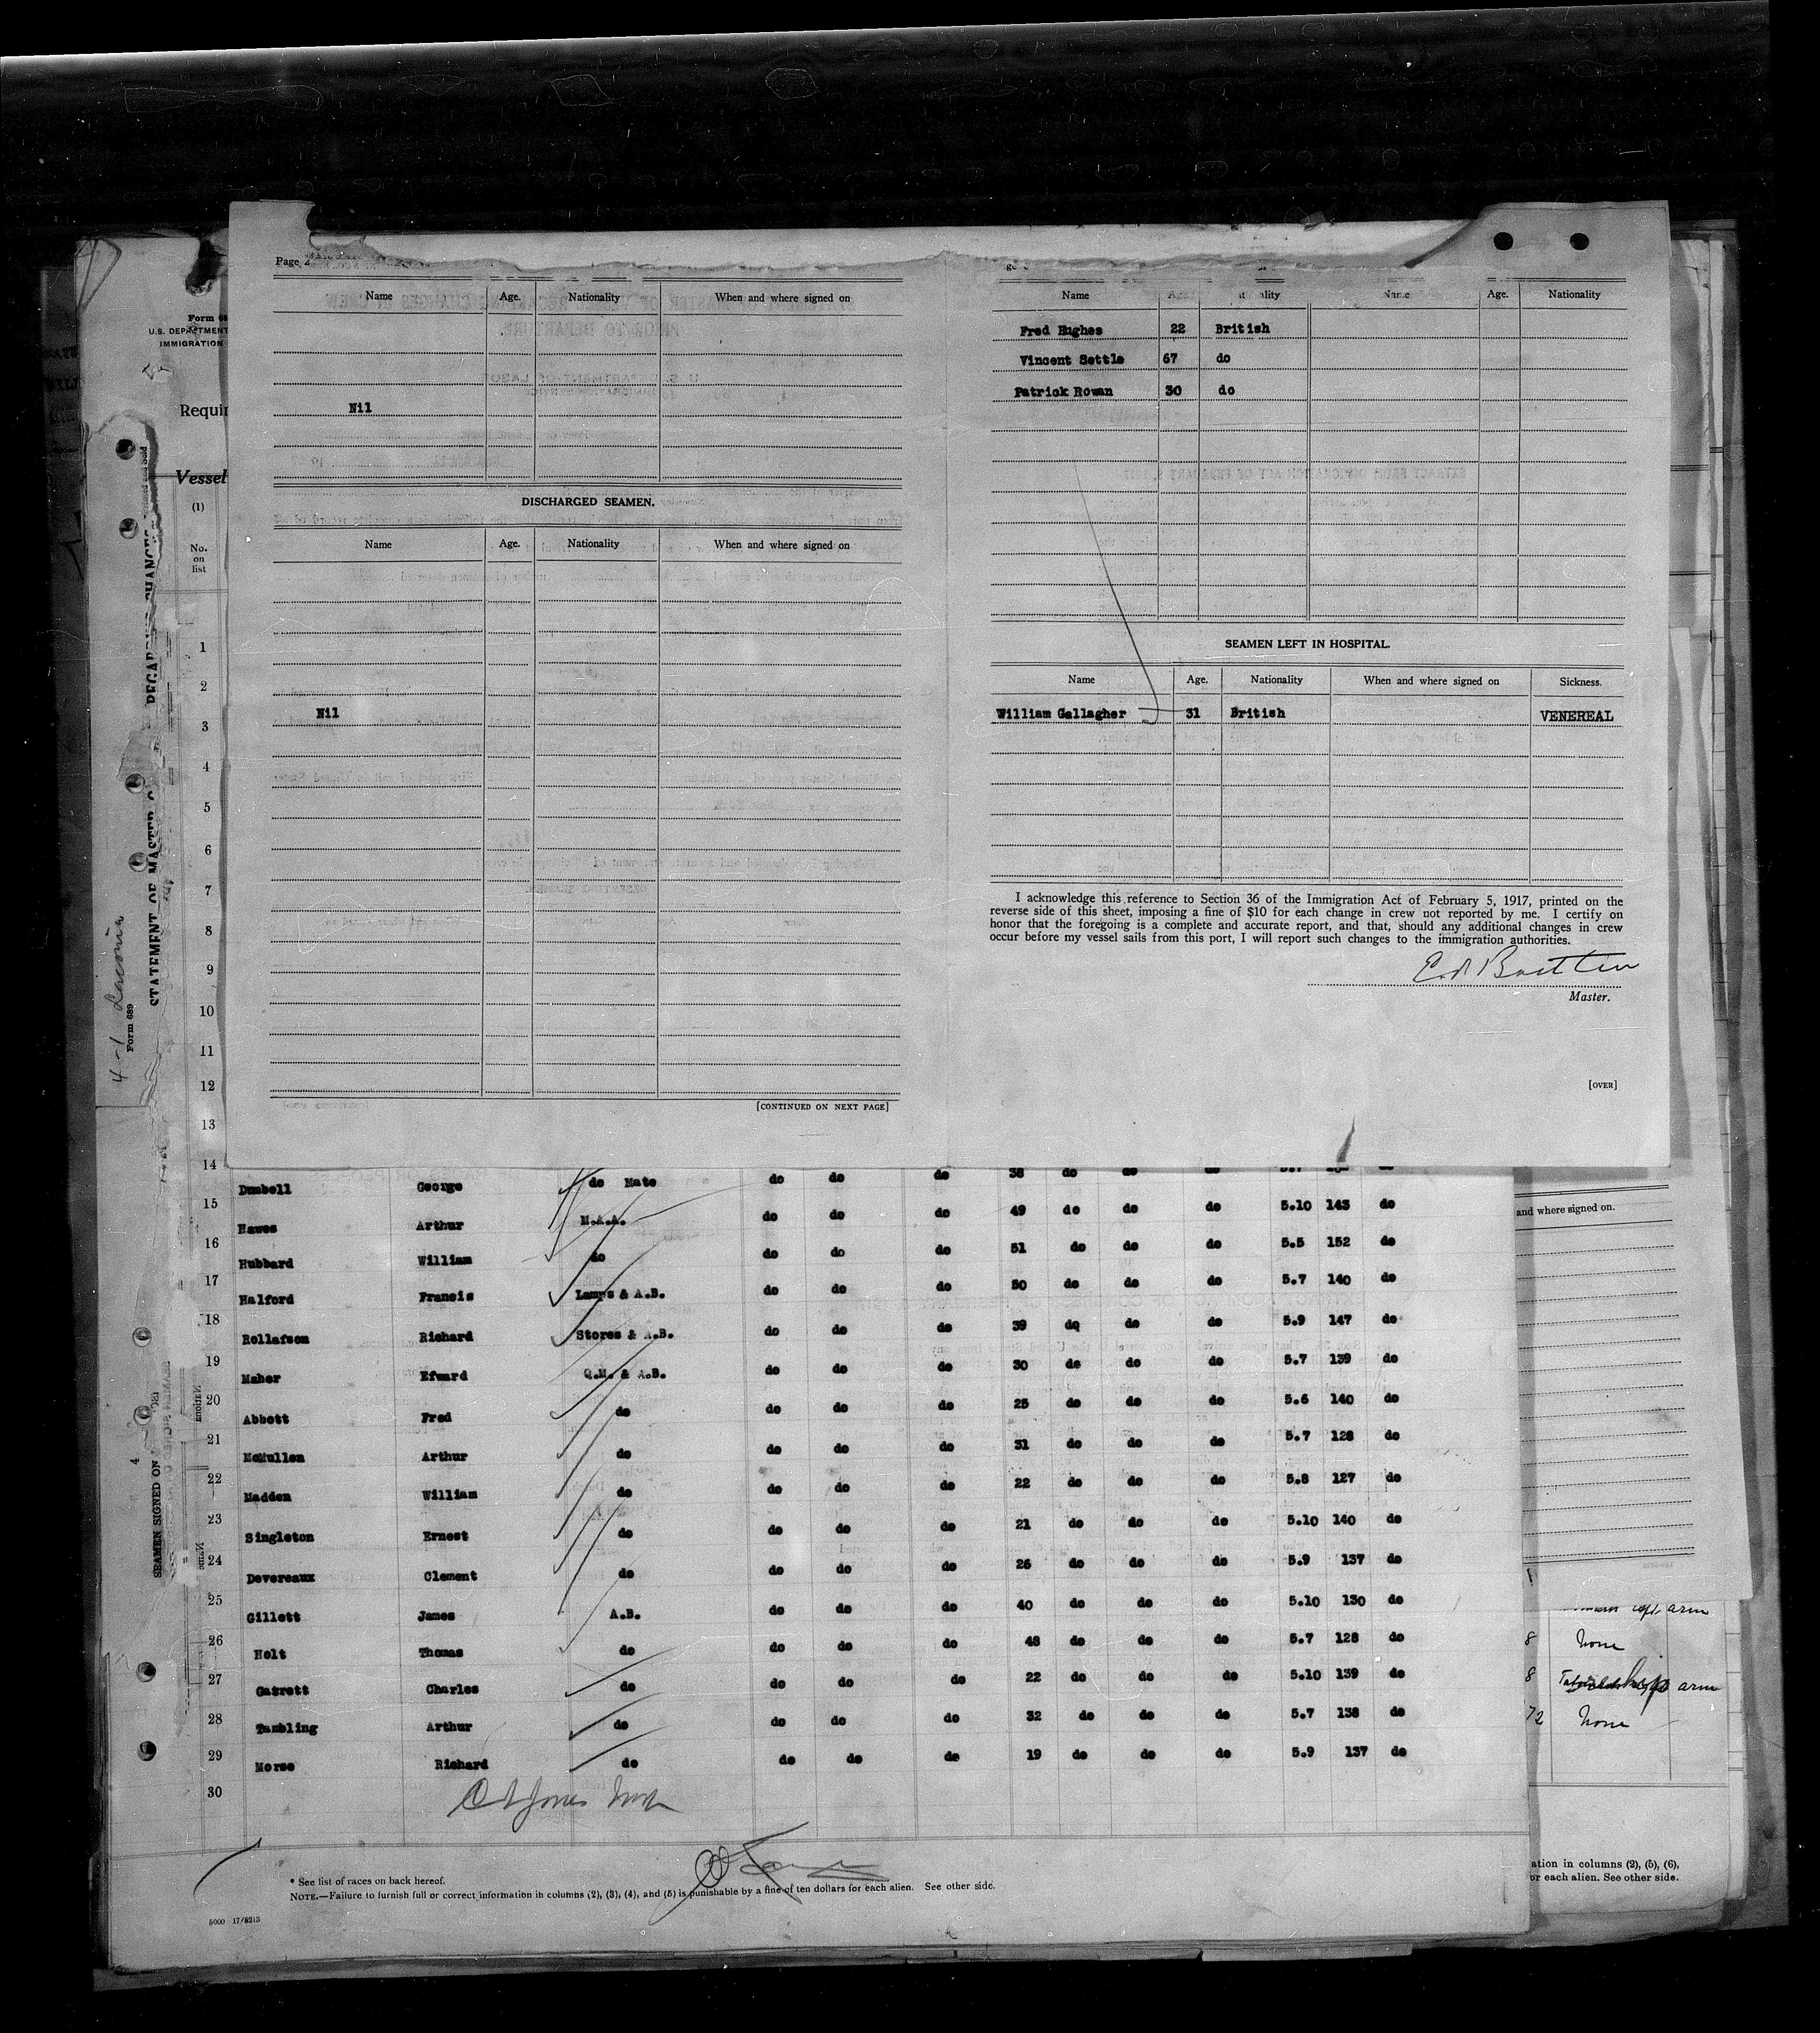 Page 2
Name Age. Nationality When and where signed on
Nil
DISCHARGED SEAMEN.
Name Age. Nationality When and where signed on
Nil
[CONTINUED ON NEXT PAGE]
Name Name Age. Nationality
Fred Hughes 22 British
Vincent Settle 67 do
Patrick Rowan 30 do
SEAMEN LEFT IN HOSPITAL.
Name Age. Nationality When and where signed on Sickness.
William Gallagher 31 British VENEREAL
I acknowledge this reference to Section 36 of the Immigration Act of February 5, 1917, printed on the
reverse side of this sheet, imposing a fine of $10 for each change in crew not reported by me. I certify on
honor that the foregoing is a complete and accurate report, and that, should any additional changes in crew
occur before my vessel sails from this port, I will report such changes to the immigration authorities.
Master.
[OVER]
Form 68
U.S. DEPARTMENT
IMMIGRATION
Requir
Vessel
(1)
No.
on
list
1
2
3
4
5
6
7
8
9
10
11
12
13
14 Dumbell George do Mate do do do 38 do do do
15 Hawes Arthur M.A.A. do do do 49 do do do 5.10 143 do
16 Hubbard William do do do do 51 do do do 5.5 152 do
17 Halford Francis Lamps & A.B. do do do 50 do do do 5.7 140 do
18 Rollafson Richard Stores & A.B. do do do 39 do do do 5.9 147 do
19 Maher Efward Q.M. & A.B. do do do 30 do do do 5.7 139 do
20 Abbott Fred do do do do 25 do do do 5.6 140 do
21 McMullen Arthur do do do do 31 do do do 5.7 128 do
22 Madden William do do do do 22 do do do 5.8 127 do
23 Singleton Ernest do do do do 21 do do do 5.10 140 do
24 Devereaux Clement do do do do 26 do do do 5.9 137 do
25 Gillett James A.B. do do do 40 do do do 5.10 130 do
26 Holt Thomas do do do do 48 do do do 5.7 128 do
27 Garrett Charles do do do do 22 do do do 5.10 139 do
28 Tambling Arthur do do do do 32 do do do 5.7 138 do
29 Morse Richard do do do do 19 do do do 5.9 137 do
30
* See list of races on back hereof.
NOTE.—Failure to furnish full or correct information in columns (2), (3), (4), and (5) is punishable by a fine of ten dollars for each alien. See other side.
5000 17/8213
and where signed on.
arm
8 None
8 arm
72 None
ation in columns (2), (5), (6),
or each alien. See other side.
Form 689
STATEMENT OF MASTER
SEAMEN SIGNED ON
4